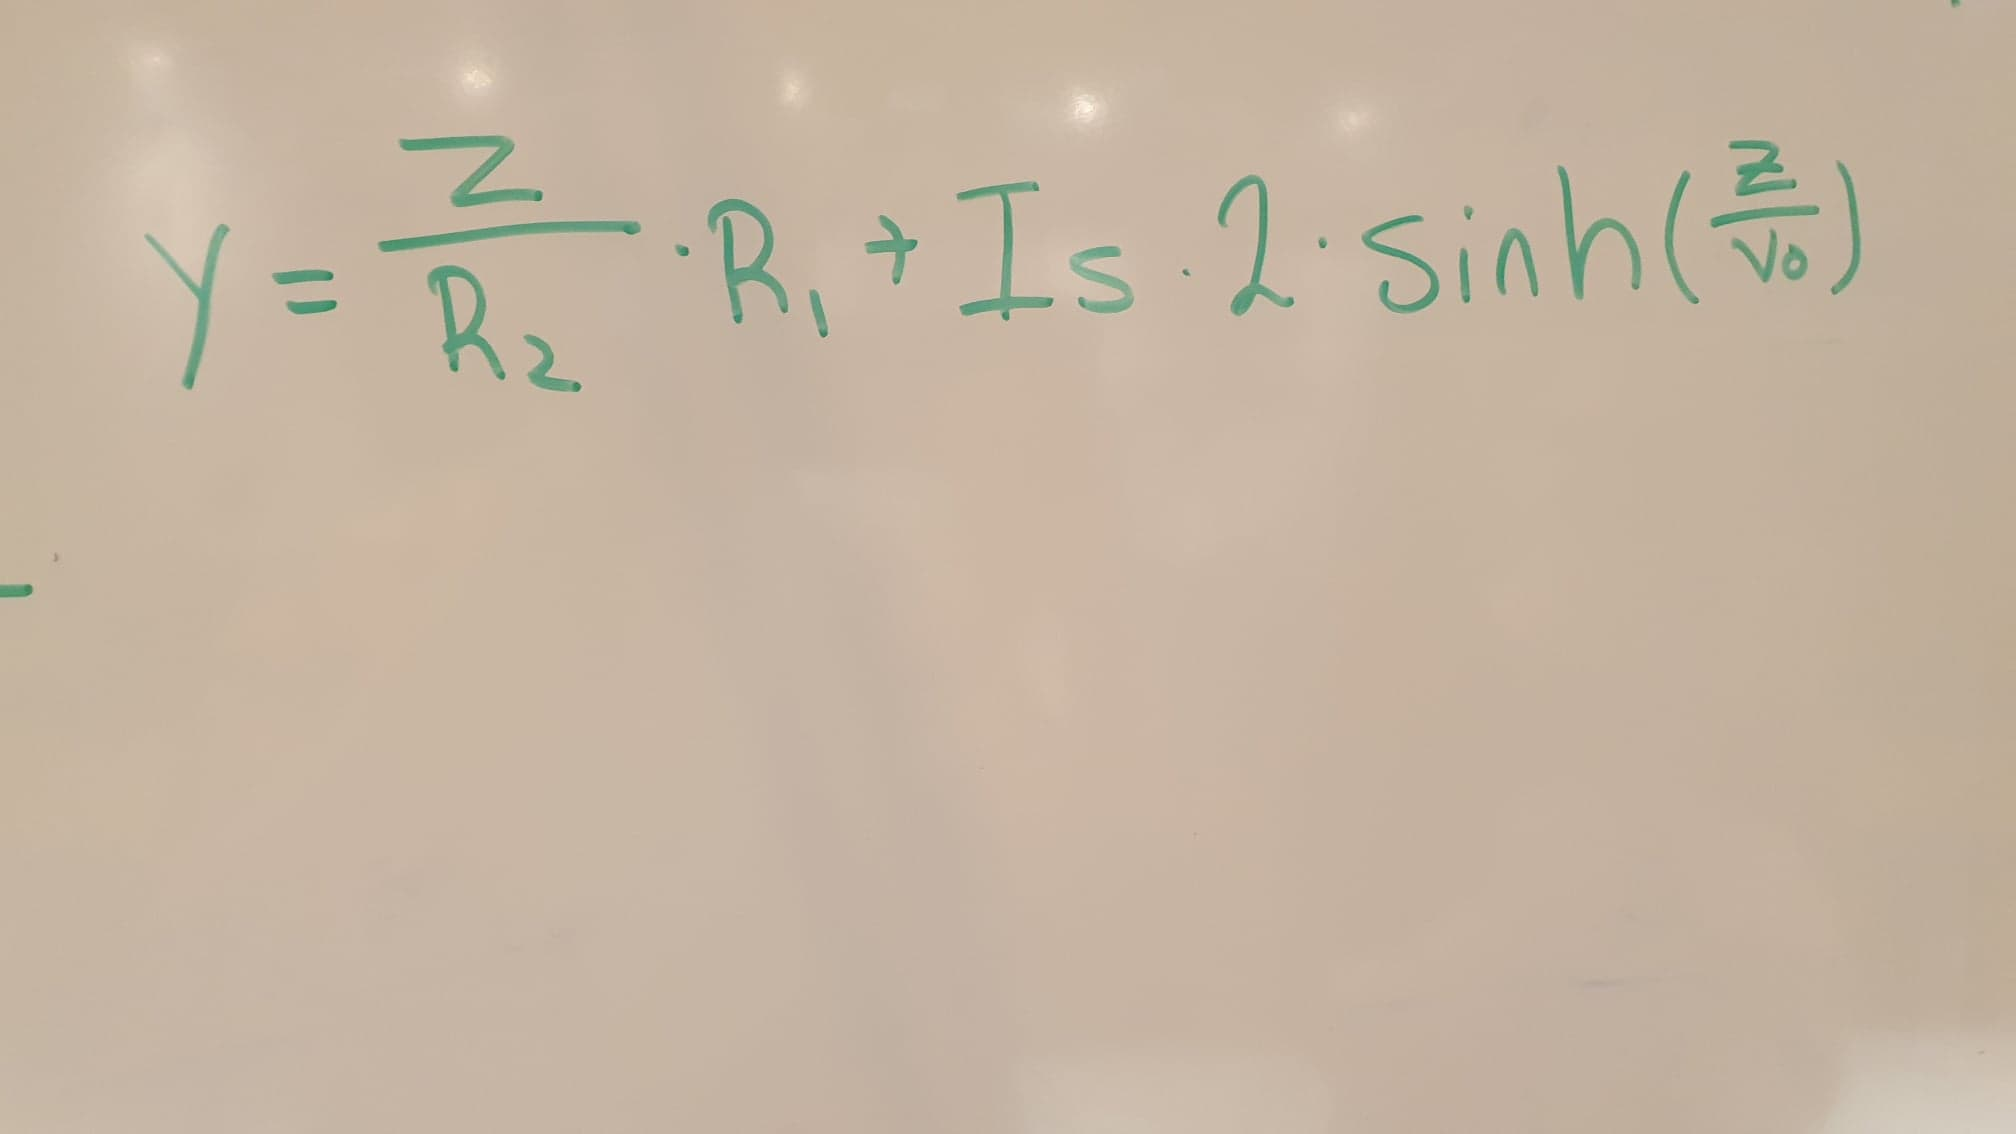 y = z/R₂ · R₁ + Is · 2 · sinh(z/Vo)